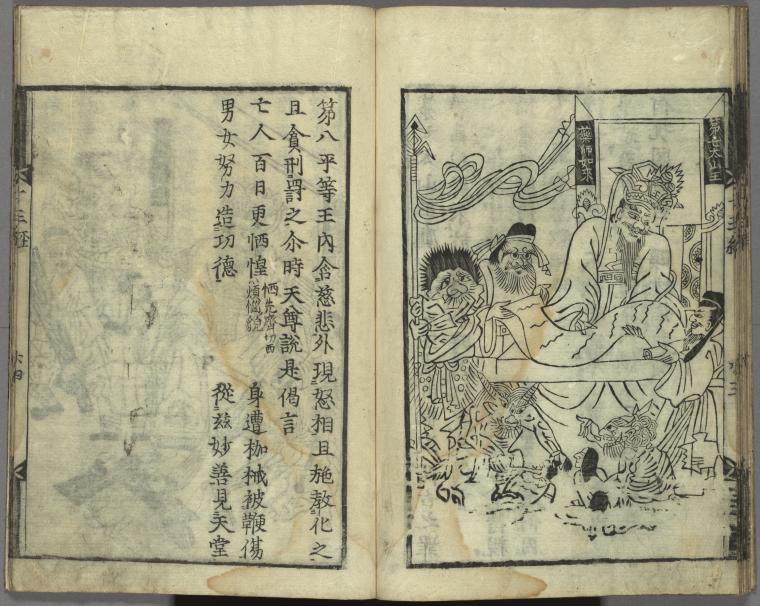 第七大山王
藥師如來
第八平等王內含慈悲外現怒相且施教化之
且貪刑罰之尒時天尊說是偈言
亡人百日更恓惶 恓先齊切西煩惱貌 身遭枷械被鞭傷
男女努力造功德 從茲妙善見天堂
十王經